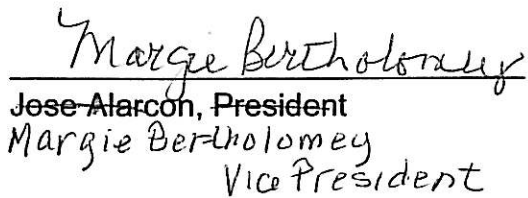 Margie Bertholomey
Jose Alarcon, President
Margie Bertholomey
Vice President